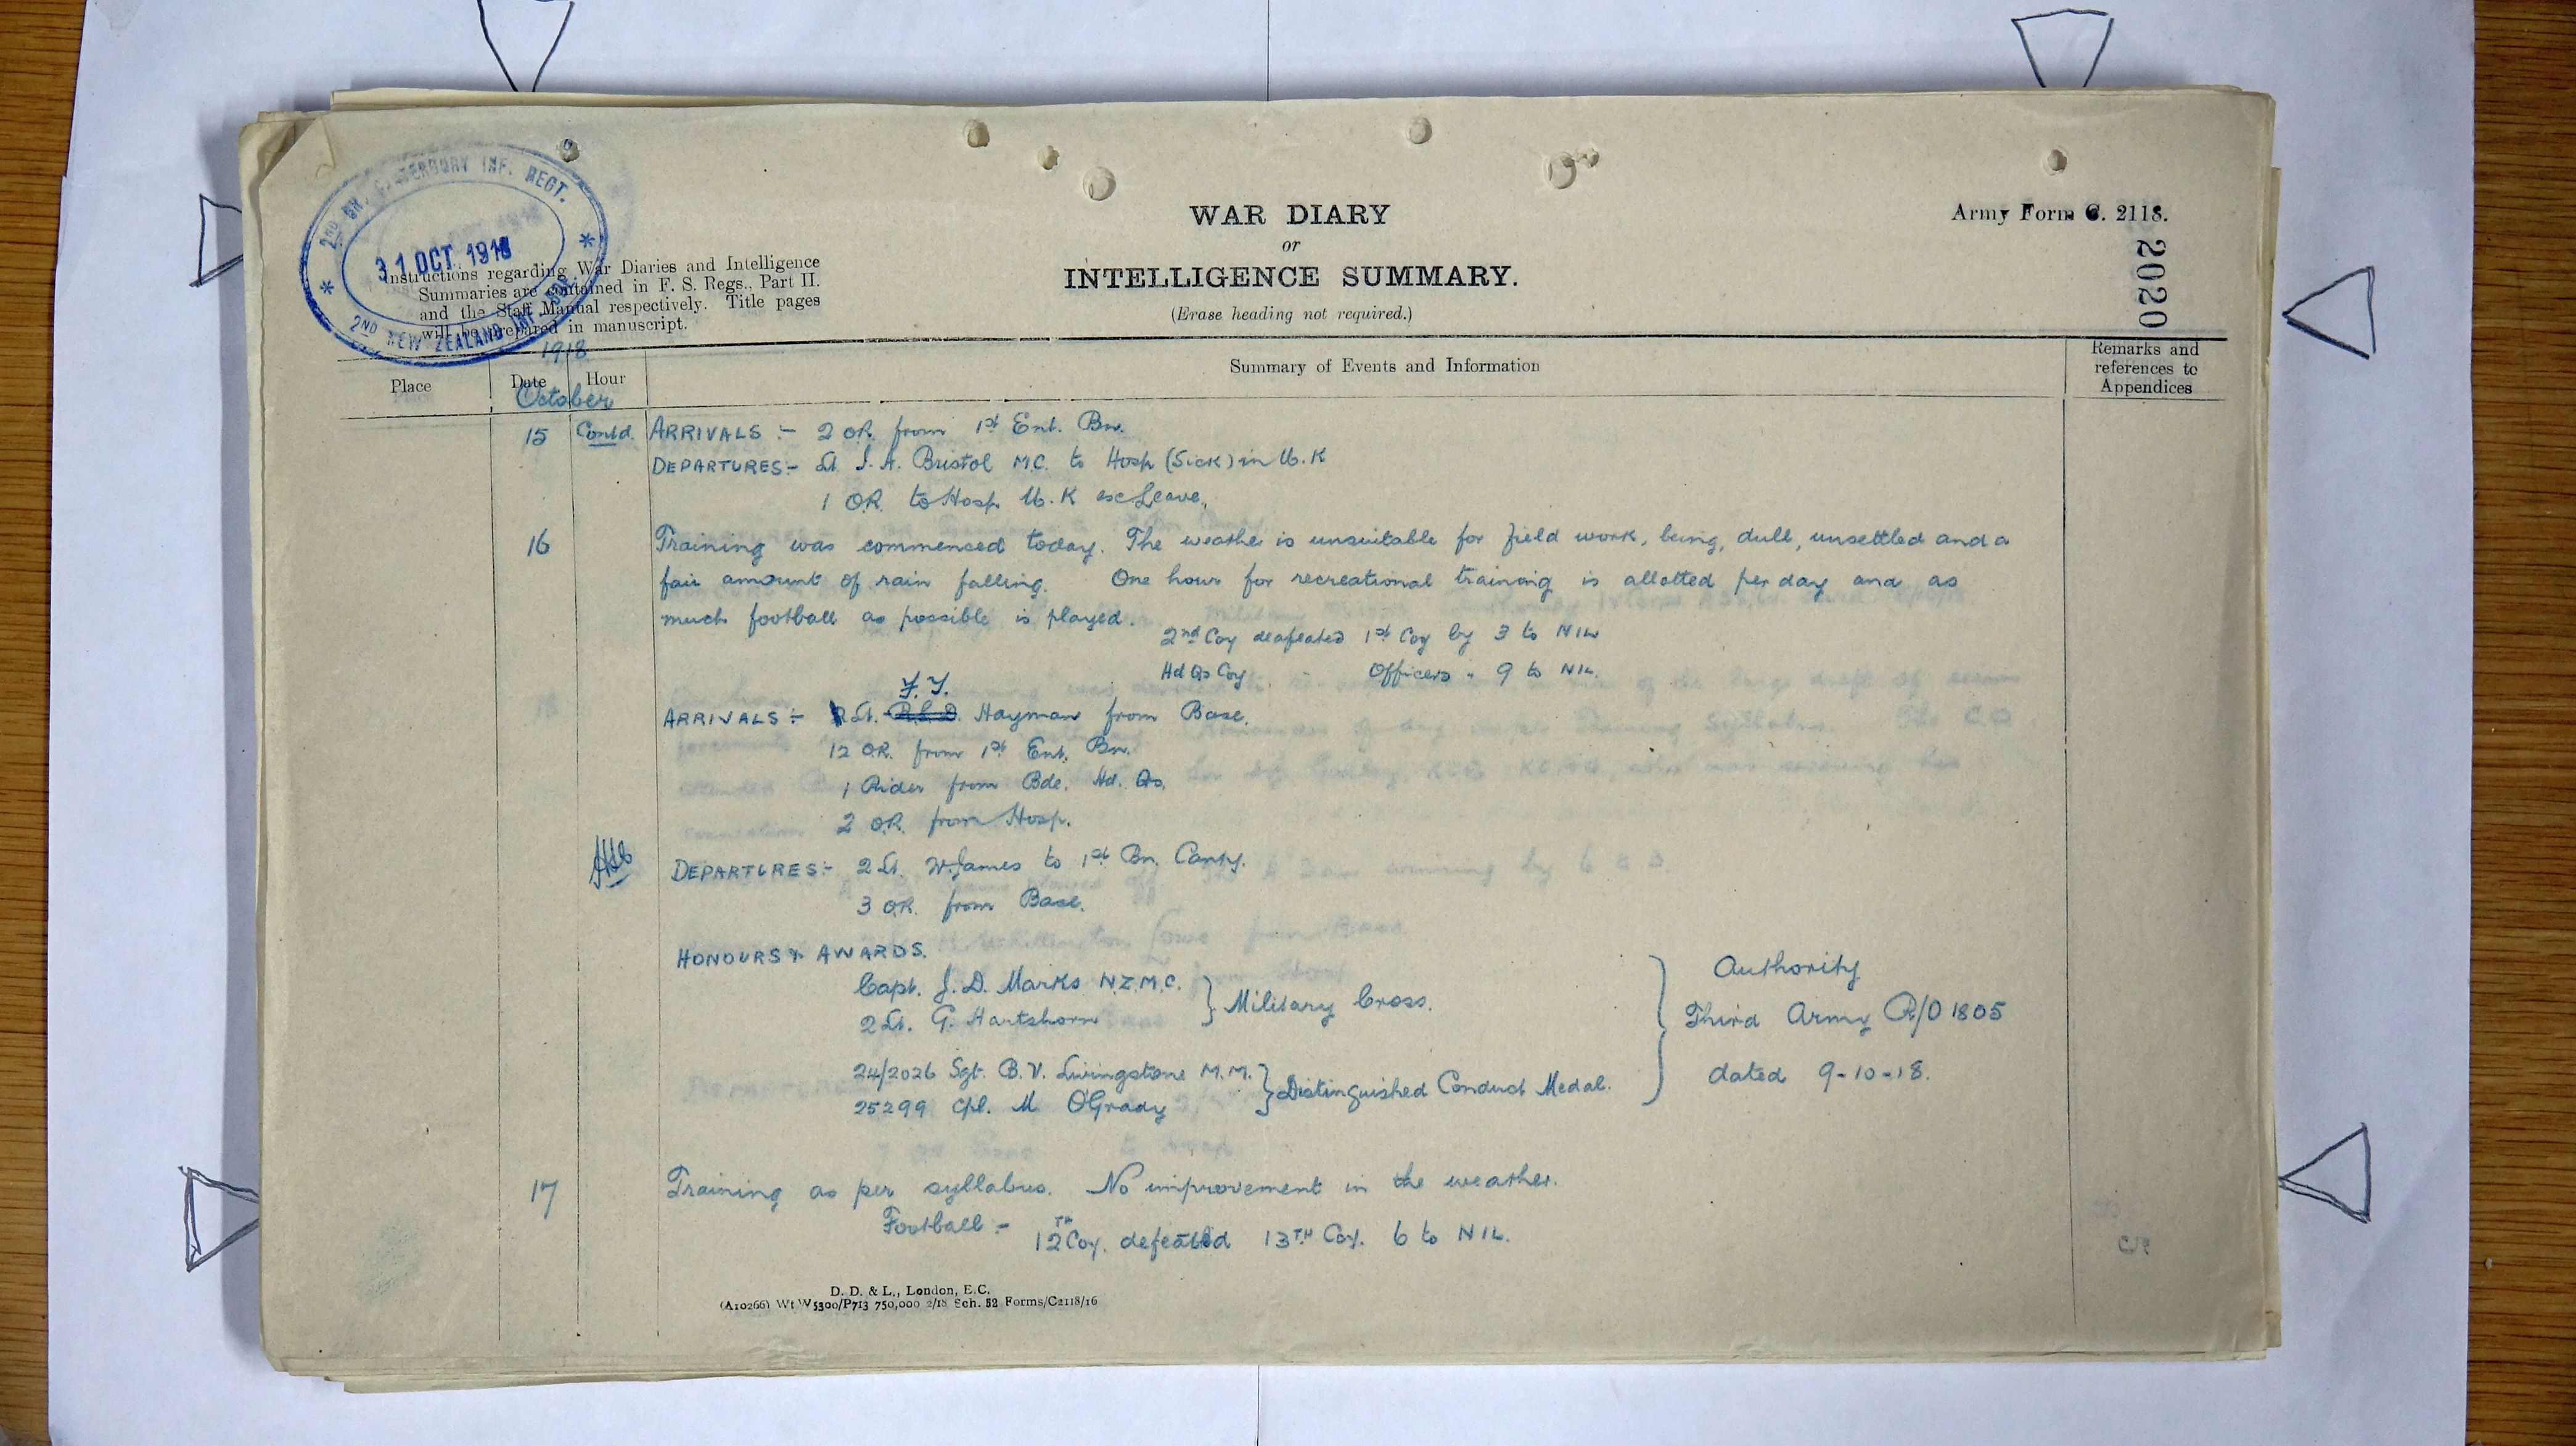 2ND BN. CANTERBURY INF. REGT.
31 OCT. 1918
2ND NEW ZEALAND INF. BDE.
WAR DIARY
or
INTELLIGENCE SUMMARY.
(Erase heading not required.)
Army Form C. 2118.
2020
Instructions regarding War Diaries and Intelligence
Summaries are contained in F. S. Regs., Part II.
and the Staff Manual respectively. Title pages
will be prepared in manuscript.
1918
Place Date Hour Summary of Events and Information Remarks and references to Appendices
October
15 Contd. ARRIVALS :- 2 O.R. from 1st Ent. Bn.
DEPARTURES:- Lt. I. A. Bristol M.C. to Hosp (Sick) in U.K
1 O.R. to Hosp U.K esc Leave.
16 Training was commenced today. The weather is unsuitable for field work, being, dull, unsettled and a
fair amount of rain falling. One hour for recreational training is allotted per day and as
much football as possible is played.
2nd Coy deafeated 1st Coy by 3 to NIL
Hd Qs Coy " Officers " 9 to NIL.
F. T.
ARRIVALS :- 2Lt. Hayman from Base.
12 O.R. from 1st Ent. Bn.
1 Rider from Bde. Hd. Qs.
2 O.R. from Hosp.
DEPARTURES:- 2Lt. W. James to 1st Bn. Canty.
3 O.R. from Base.
HONOURS & AWARDS.
Capt. J. D. Marks N.Z.M.C. } Military Cross.
2Lt. G. Hartshorn
24/2026 Sgt. B. V. Livingstone M.M. } Distinguished Conduct Medal.
25299 Cpl. M O'Grady
Authority
Third Army R/O 1805
dated 9-10-18.
17 Training as per syllabus. No improvement in the weather.
Football :- 12TH Coy. defeated 13TH Coy. 6 to NIL.
D. D. & L., London, E.C.
(A10266) Wt W5300/P713 750,000 2/18 Sch. 52 Forms/C2118/16